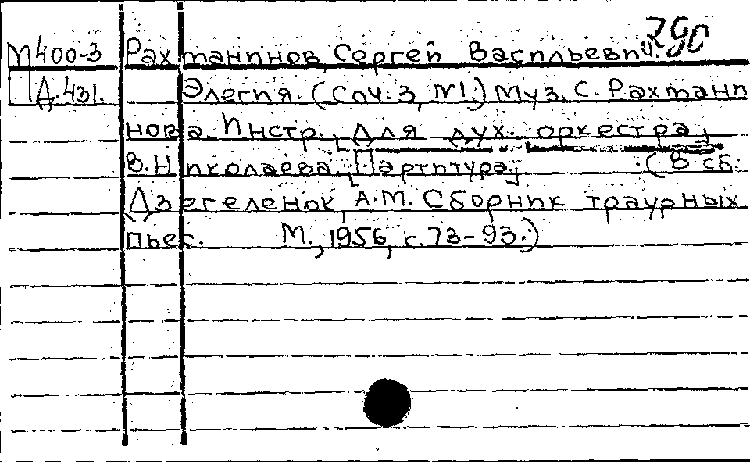 390
М400-3 Рахманинов, Сергей Васильевич.
Д.431. Элегия. (Соч. 3, №1.) Муз. С. Рахмани
нова. Инстр. [для дух. оркестра]
В. Николаева. [Партитура] (В сб.
Дзегеленок, А.М. Сборник траурных
пьес. М., 1956, с. 73-93.)